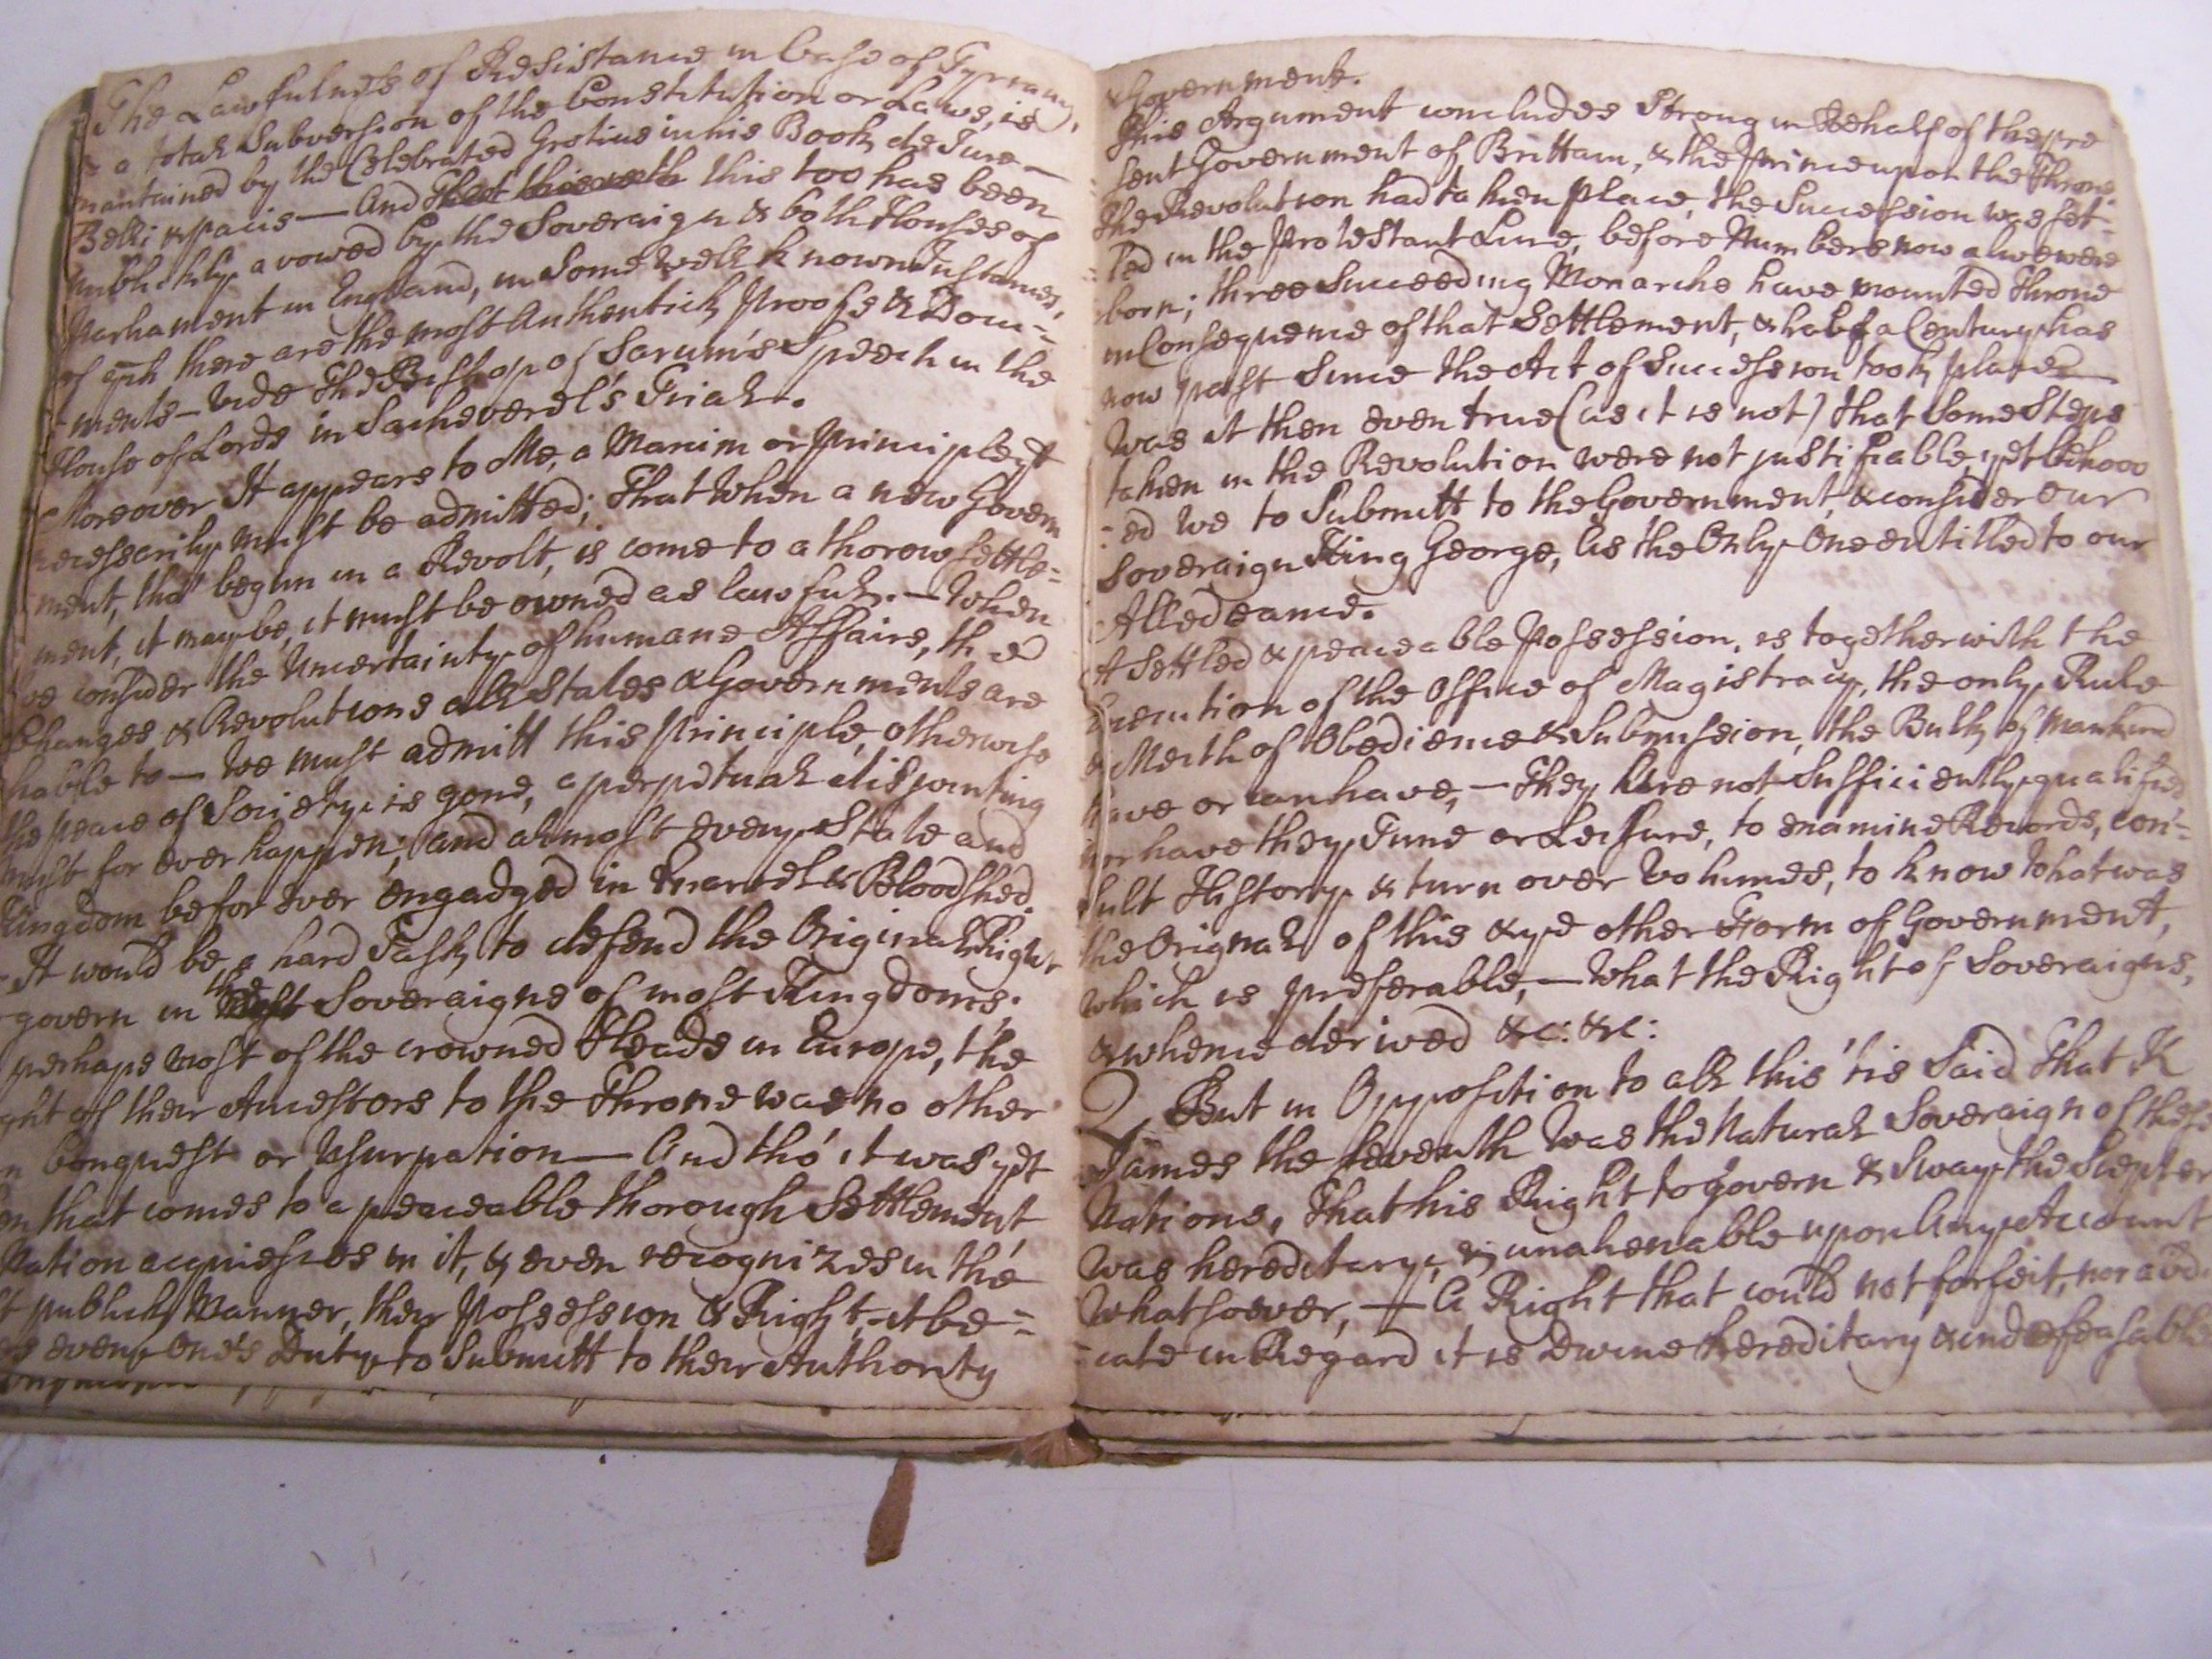 The Lawfulness of Resistance in Case of Tyranny,
a total Subversion of the Constitution or Laws, is
mantained by the Celebrated Grotius in his Book de Jure
Belli & pacis — And this too has been
publickly avowed by the Soveraign & both Houses of
Parliament in England, in Some well known Instances,
of wch there are the most Authentick Proofs & Docu=
=ments — Vide The Bishop of Sarum's Speech in the
House of Lords in Sacheverel's Trial.
Moreover It appears to Me, a Maxim or Principle yt
necessarily must be admitted; That when a new Govern
ment, tho' begun in a Revolt, is come to a thorow settle=
ment, it may be, it must be owned as lawful. — When
we consider the Uncertainty of humane Affairs, the
Changes & Revolutions all States & Governments are
liable to — We must admitt this Principle, otherwise
the peace of Society is gone, a perpetual disjointing
must for ever happen; and almost every State and
Kingdom be for ever engadged in Quarrel & Bloodshed.
It would be a hard Task to defend the Original Right
govern in the Soveraigns of most Kingdoms;
perhaps most of the crowned Heads in Europe, the
ght of their Ancestors to the Throne was no other
n Conquest or Usurpation — And tho' it was yet
en that comes to a peaceable thorough Settlement
Nation acquiesces in it, & even recognizes in the
t publick Manner, their Possession & Right, it be=
es every One's Duty to Submitt to their Authority
& Government.
This Argument concludes Strong in Behalf of the pre
sent Government of Brittain, & the Prince upon the Throne.
The Revolution had taken place, the Succession was set=
=led in the Protestant Line, before Numbers now alive were
born; three Succeeding Monarchs have mounted Throne
in Consequence of that Settlement, & half a Century has
now past Since the Act of Succession took place
Was it then even true (as it is not) that Some Steps
taken in the Revolution were not justifiable, yet behoov
=ed we to Submitt to the Government, & consider our
Soveraign King George, as the Only One entitled to our
Alledgeance.
A Settled & peaceable Possession, is together with the
Execution of the Office of Magistracy, the only Rule
& Meith of Obedience & Submission, the Bulk of Mankind
have or can have, — They are not Sufficiently qualified
nor have they Time or Leisure, to examine Records, con=
sult History & turn over Volumes, to know what was
the Orignal of this & ye other Form of Government,
which is preferable, — What the Right of Soveraigns,
& whence derived &c: &c:
2 But in Opposition to all this 'tis Said That K
James the seventh was the Natural Soveraign of these
Nations, That his Right to govern & Sway the Scepter
was hereditary, & unalienable upon Any Account
Whatsoever, — A Right that could not forfeit, nor abdi
=cate in Regard it is Divine hereditary & indefeasable